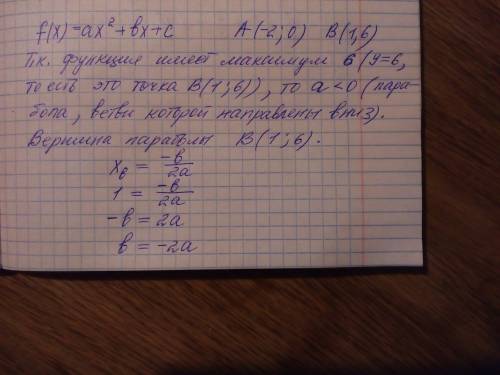 f(x) = ax² + bx + c A(-2; 0) B(1; 6)
Т.к. функция имеет максимум 6 (y=6,
то есть это точка B(1; 6)), то a < 0 (пара-
бола, ветви которой направлены вниз).
Вершина параболы B(1; 6).
x_в = -b/2a
1 = -b/2a
-b = 2a
b = -2a